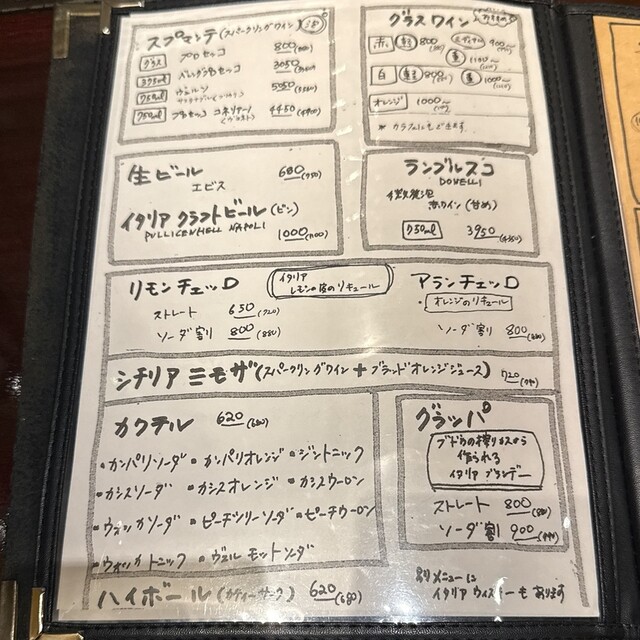 スプマンテ (スパークリングワイン)
グラス プロセッコ 800
375ml 3050
750ml 5050
750ml プロセッコ コネリアーノ 4450
グラスワイン
赤 軽 800 ミディアム 900~ 重 1100~
白 軽 重 1000~
オレンジ 1000~
* カラフェにもできます
生ビール 680 (750)
エビス
イタリア クラフトビール (ビン)
1000 (1100)
ランブルスコ
DONELLI
微発泡
赤ワイン (甘め)
750ml 3950
リモンチェッロ イタリア レモンの皮のリキュール
ストレート 650 (720)
ソーダ割り 800 (880)
アランチェッロ
・オレンジのリキュール
ソーダ割り 800 (880)
シチリア ミモザ (スパークリングワイン + ブラッドオレンジジュース) 720
カクテル 620 (680)
・カンパリソーダ ・カンパリオレンジ ・ジントニック
・カシスソーダ ・カシスオレンジ ・カシスウーロン
・ウォッカソーダ ・ピーチツリーソーダ ・ピーチウーロン
・ウォッカトニック ・ヴェルモットソーダ
グラッパ
ブドウの搾りカスから
作られる
イタリアブランデー
ストレート 800 (880)
ソーダ割 900 (990)
ハイボール (カティーサーク) 620 (680)
別メニューに
イタリア ウィスキーも あります